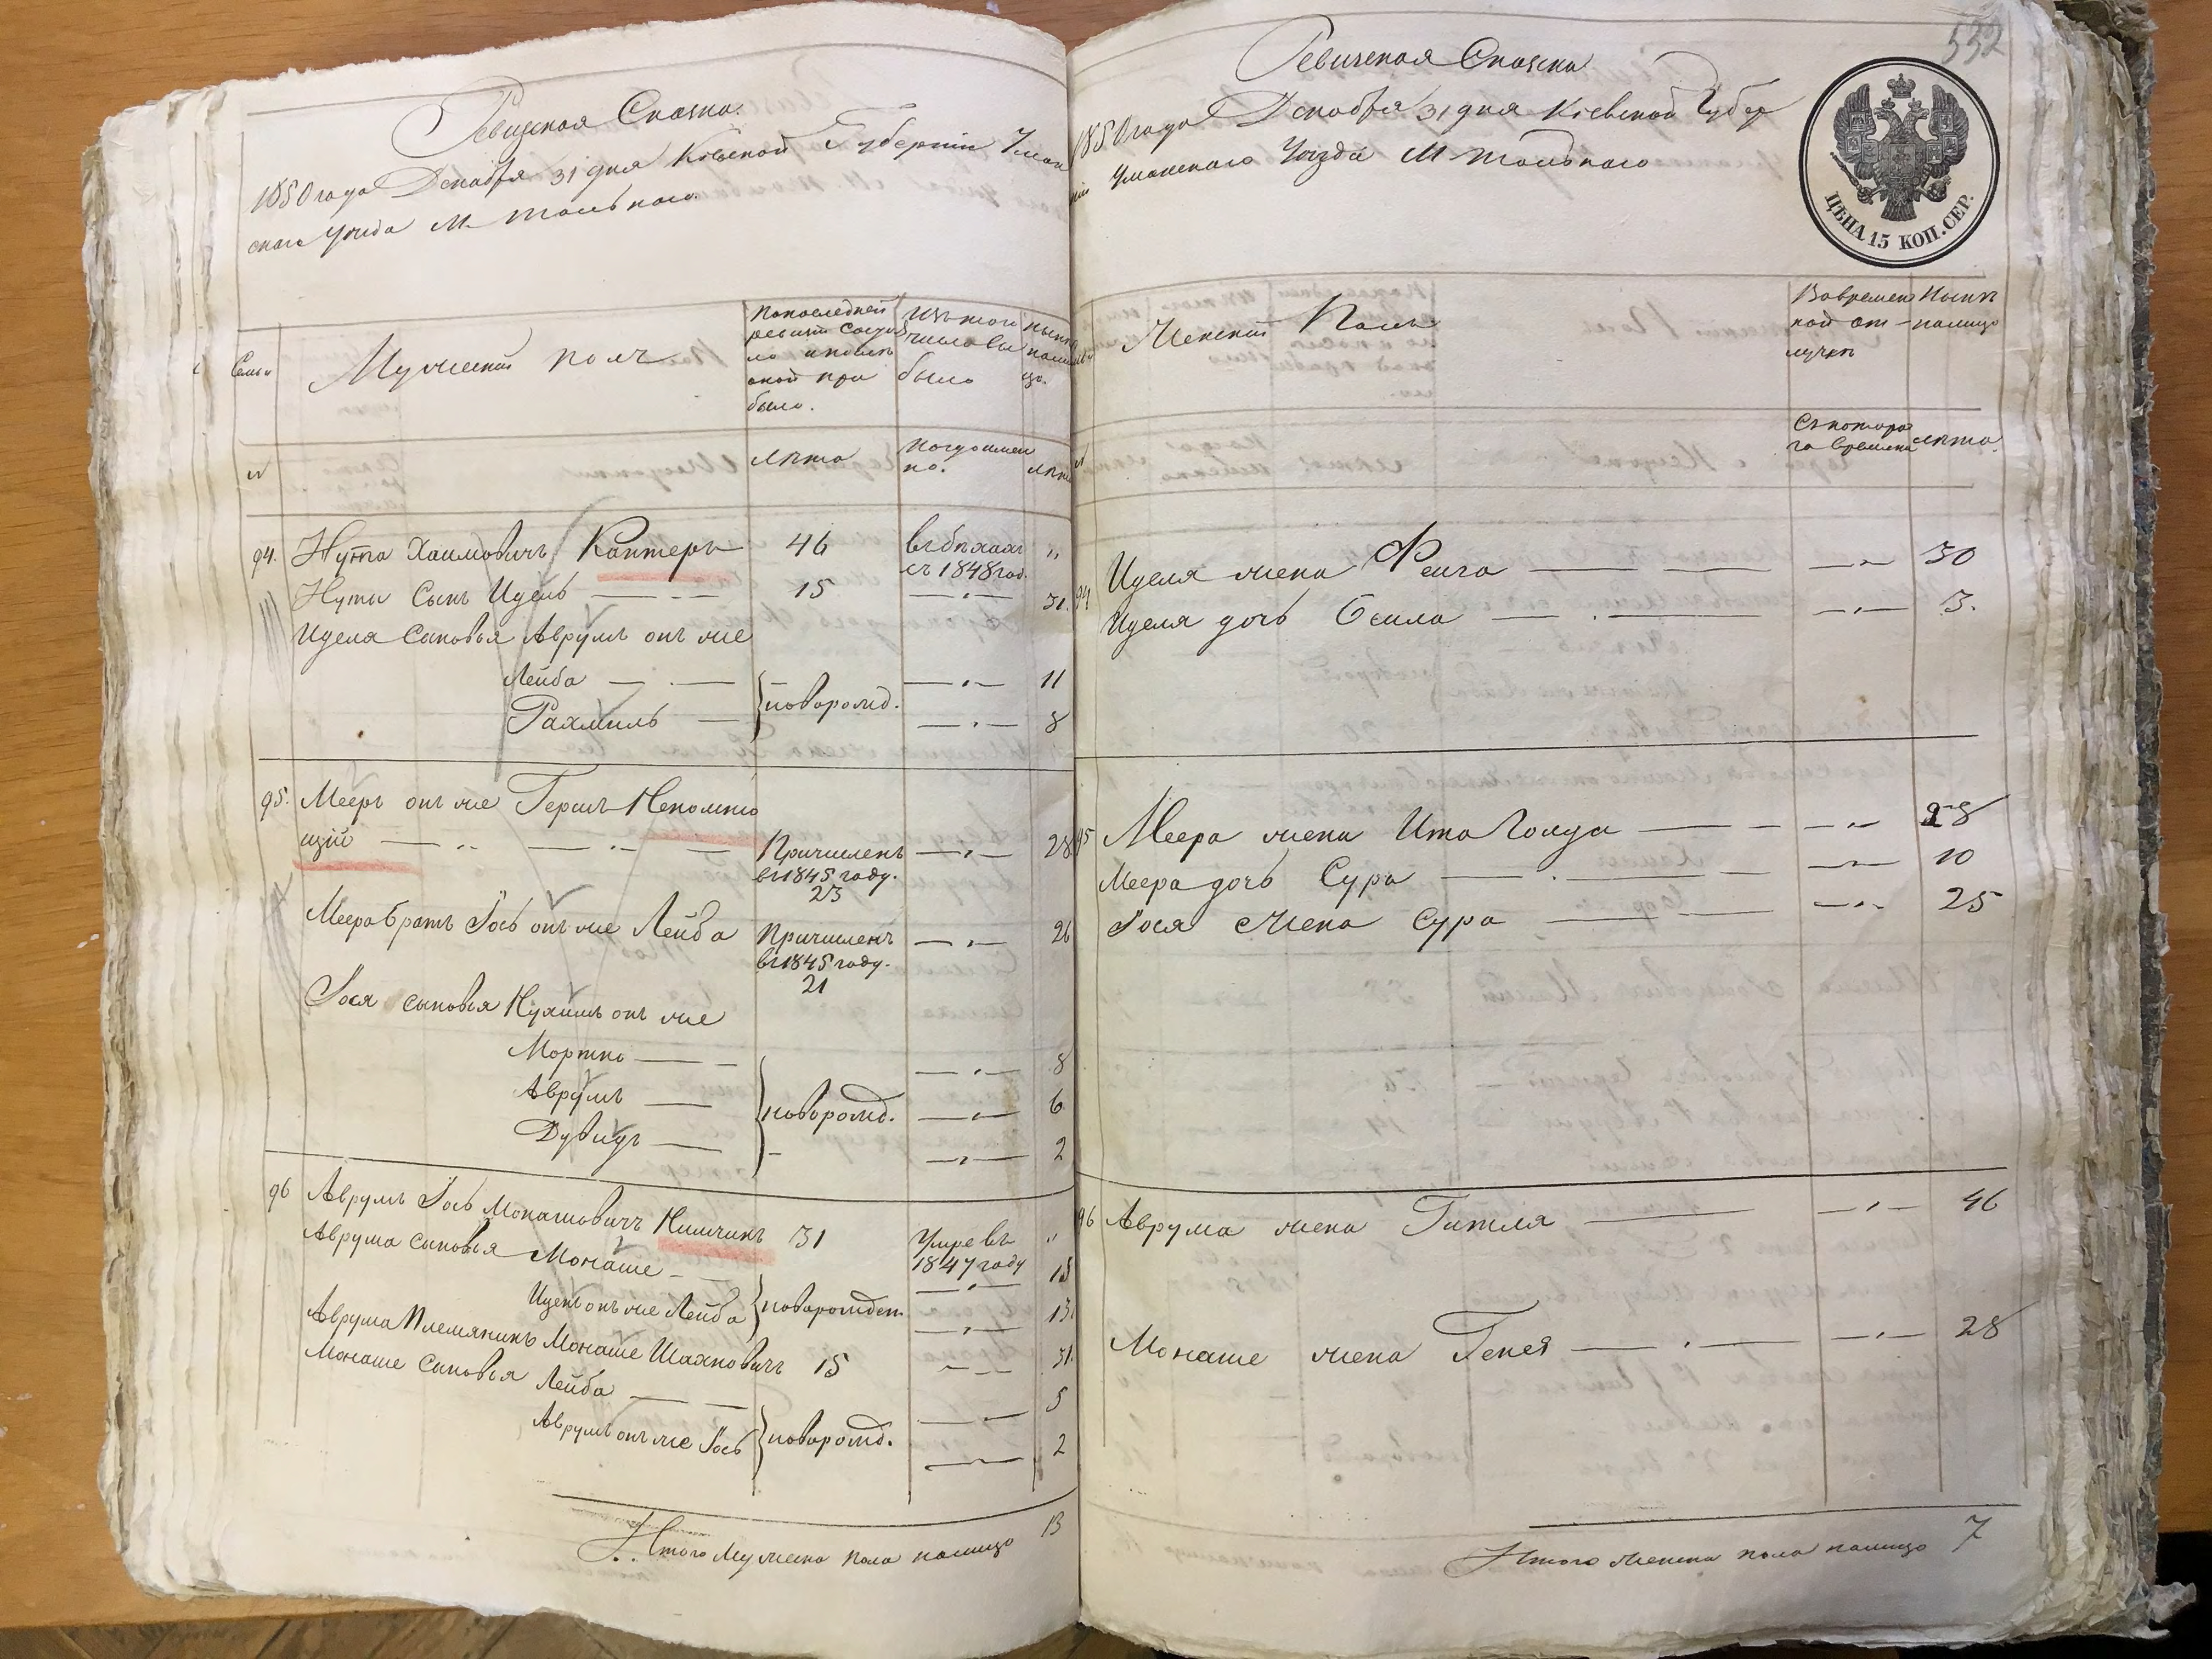 Ревизская Сказка.
1850 года Декабря 31 дня Кіевской Губерніи Уман
скаго Уезда М. Тальнаго.
Семьи
Мужеский полъ
По последней
ревизіи состоя
ло и после
оной при
было.
Изъ того
числа вы
было
ныне
налицо.
№
Лета
Когда имен
но.
Лета
94. Нута Хаимовичъ Кантеръ 46 въ бегахъ "
съ 1848 год.
Нуты Сынъ Идель 15 31.
Иделя Сыновья Аврумъ онъ же
Лейба 11
новорожд.
Рахмиль 8
95. Мееръ онъ же Гершъ Непомню
щій Причисленъ 28
въ 1845 году.
23
Меера братъ Іось онъ же Лейба Причисленъ 26
въ 1845 году.
21
Іося сыновья Нухимъ онъ же
Мортко 8
Аврумъ новорожд. 6
Дувидъ 2
96 Аврумъ Іось Монашовичъ 31 Умре въ "
1847 году
Аврума сыновья Монаше 15
Ицекъ онъ же Лейба новорожден. 13
Аврума Племяникъ Монаше Шахновичъ 15 31.
Монаше сыновья Лейба 5
Аврумъ онъ же Іось новорожд. 2
Итого Мужеска пола налицо 13
532
Ревизская Сказка
1850 года Декабря 31 дня Кіевской Губер
ніи Уманскаго Уезда М. Тальнаго
ЦѢНА 15 КОП. СЕР.
Женский Полъ
Во времен
ной от-
лучке
Ныне
налицо
№
Съ котора
го времени
Лета.
94 Иделя жена Фейга 30
Иделя дочь Бейла 3.
95 Меера жена Ита Голда 28
Меера дочь Сура 10
Іося жена Сура 25
96 Аврума жена Гитля 46
Монаше жена Геня 28
Итого женска пола налицо 7